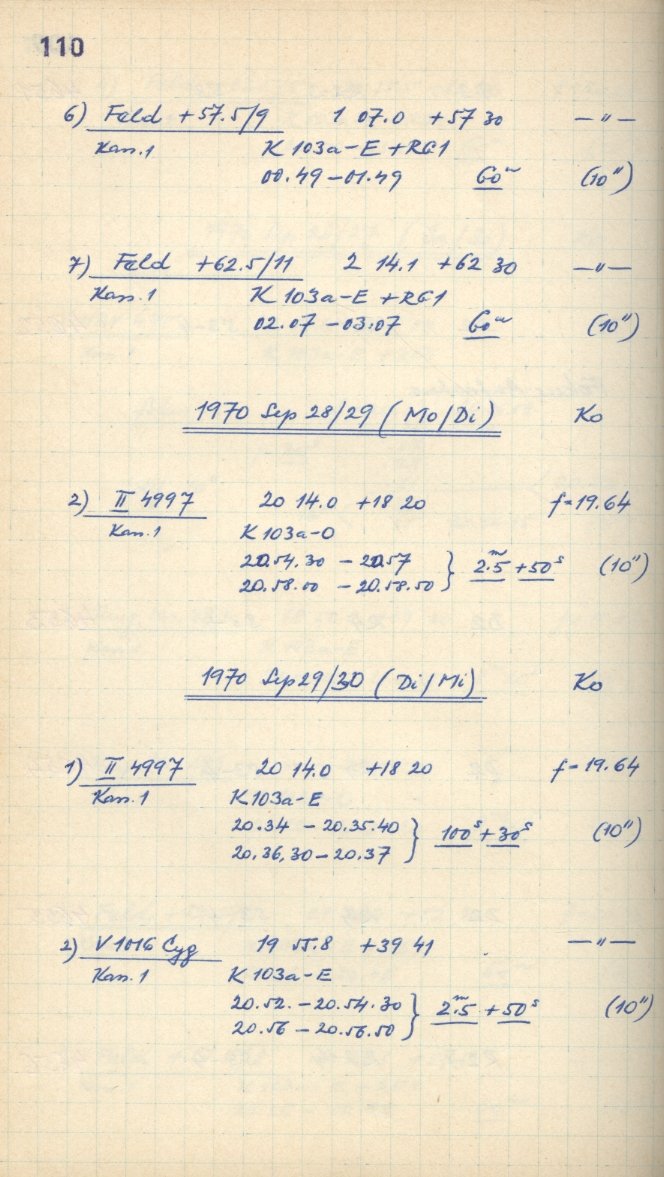 110
6) Feld +57.5/9 1 07.0 +57 30 —"—
Kass.1 K 103a-E +RG1
00.49-01.49 60ᵐ (10")
7) Feld +62.5/11 2 14.1 +62 30 —"—
Kass.1 K 103a-E +RG1
02.07-03.07 60ᵐ (10")
1970 Sep 28/29 (Mo/Di) Ko
2) II 4997 20 14.0 +18 20 f=19.64
Kass.1 K 103a-O
20.54.30 - 20.57 } 2ᵐ.5 +50ˢ (10")
20.58.00 - 20.58.50
1970 Sep 29/30 (Di/Mi) Ko
1) II 4997 20 14.0 +18 20 f=19.64
Kass.1 K 103a-E
20.34 - 20.35.40 } 100ˢ+30ˢ (10")
20.36.30-20.37
2) V1016 Cyg 19 55.8 +39 41 —"—
Kass.1 K 103a-E
20.52. - 20.54.30 } 2ᵐ.5 +50ˢ (10")
20.56 - 20.56.50